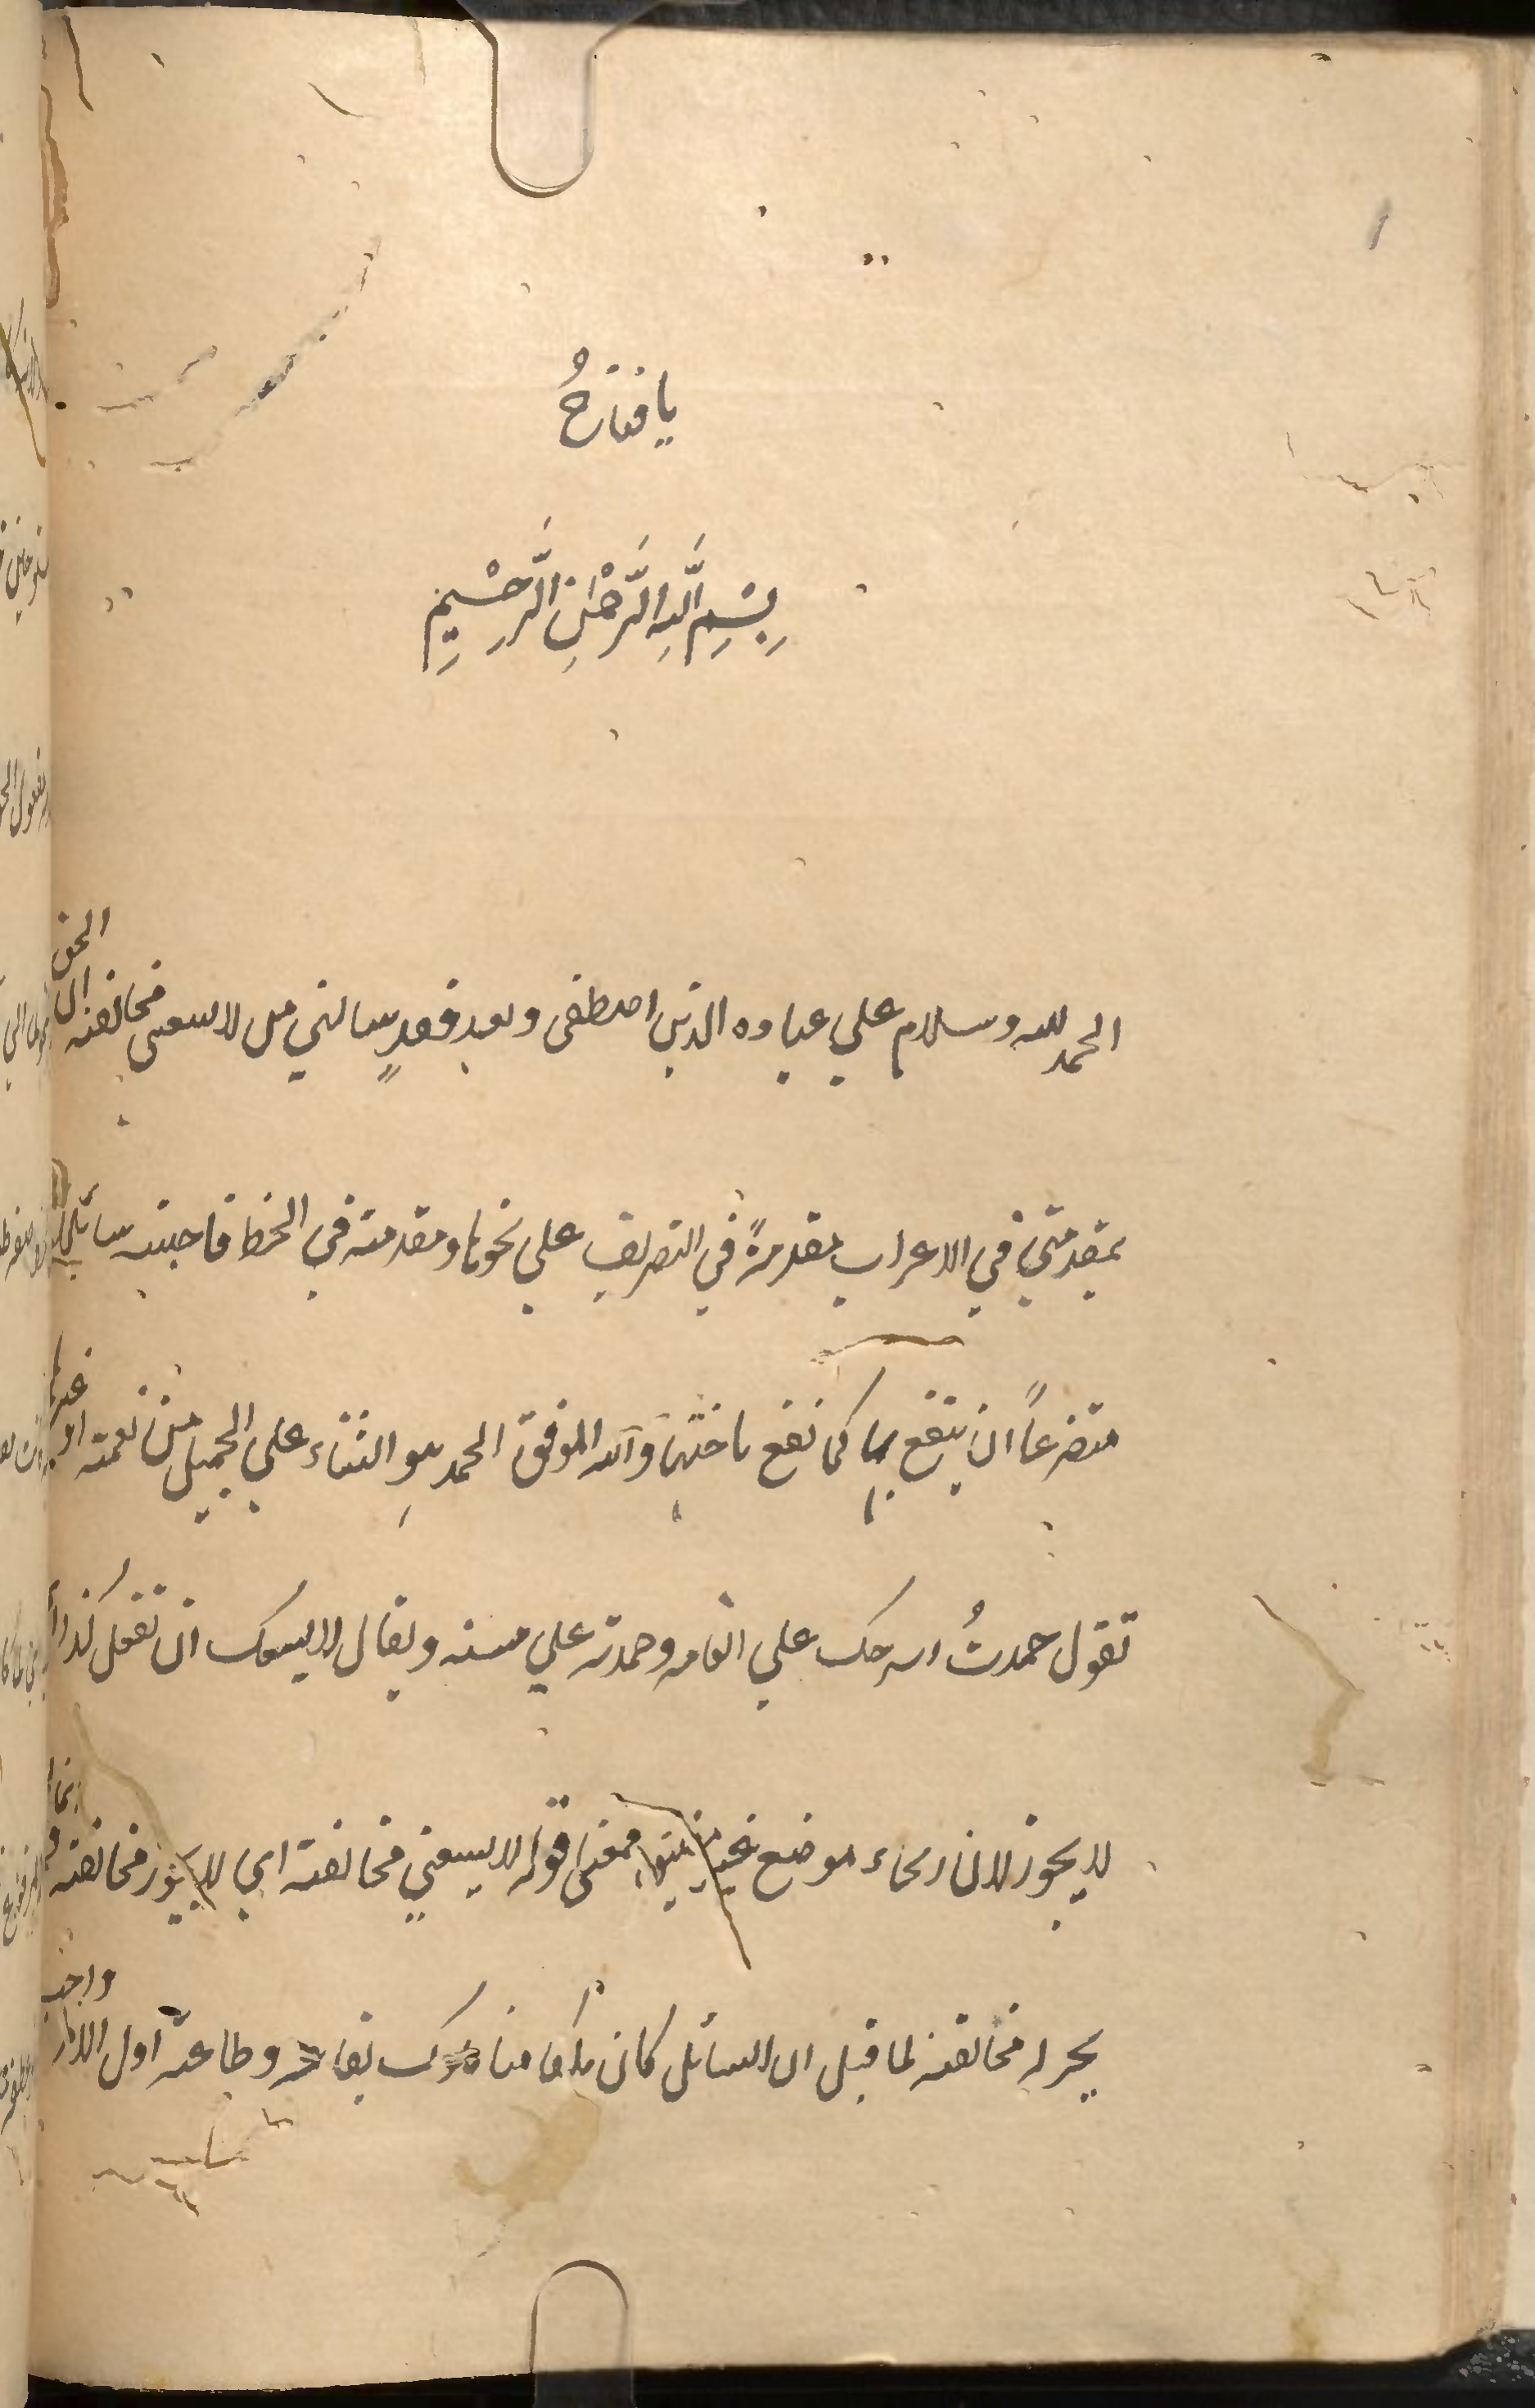 يا فتاحُ
بِسْمِ اللَّهِ الرَّحْمٰنِ الرَّحِيْمِ
الحمد لله وسلام علي عباده الذين اصطفى وبعد فقد سالني من لا يسعني مخالفته ان الحق
بمقدمتي في الاعراب مقدمةً في التصريف علي نحوها ومقدمة في الخط فاجبته سائلي
متضرعاً ان ينفع بها كما نفع باختها والله الموفق الحمد هو الثناء علي الجميل من نعمة او غيرها
تقول حمدتُ الرجل علي انعامه وحمدته علي حسنه ويقال لا يسعك ان تفعل كذا أي
لا يجوز لان موضع فمعنى قوله لا يسعني مخالفته اي لا يجوز مخالفته وانما
يجز له مخالفته لما قيل ان السائل كان وطاعة اولى الامر واجب